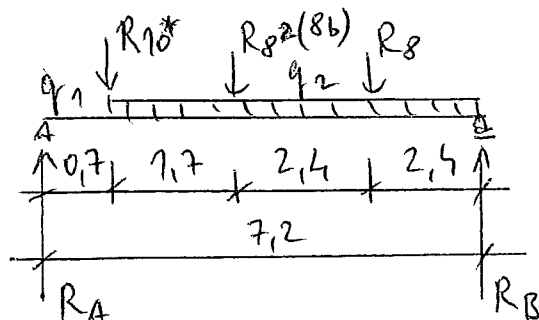 R10* R8*(8b) R8
q1 q2
A B
0,7 1,7 2,4 2,4
7,2
RA RB